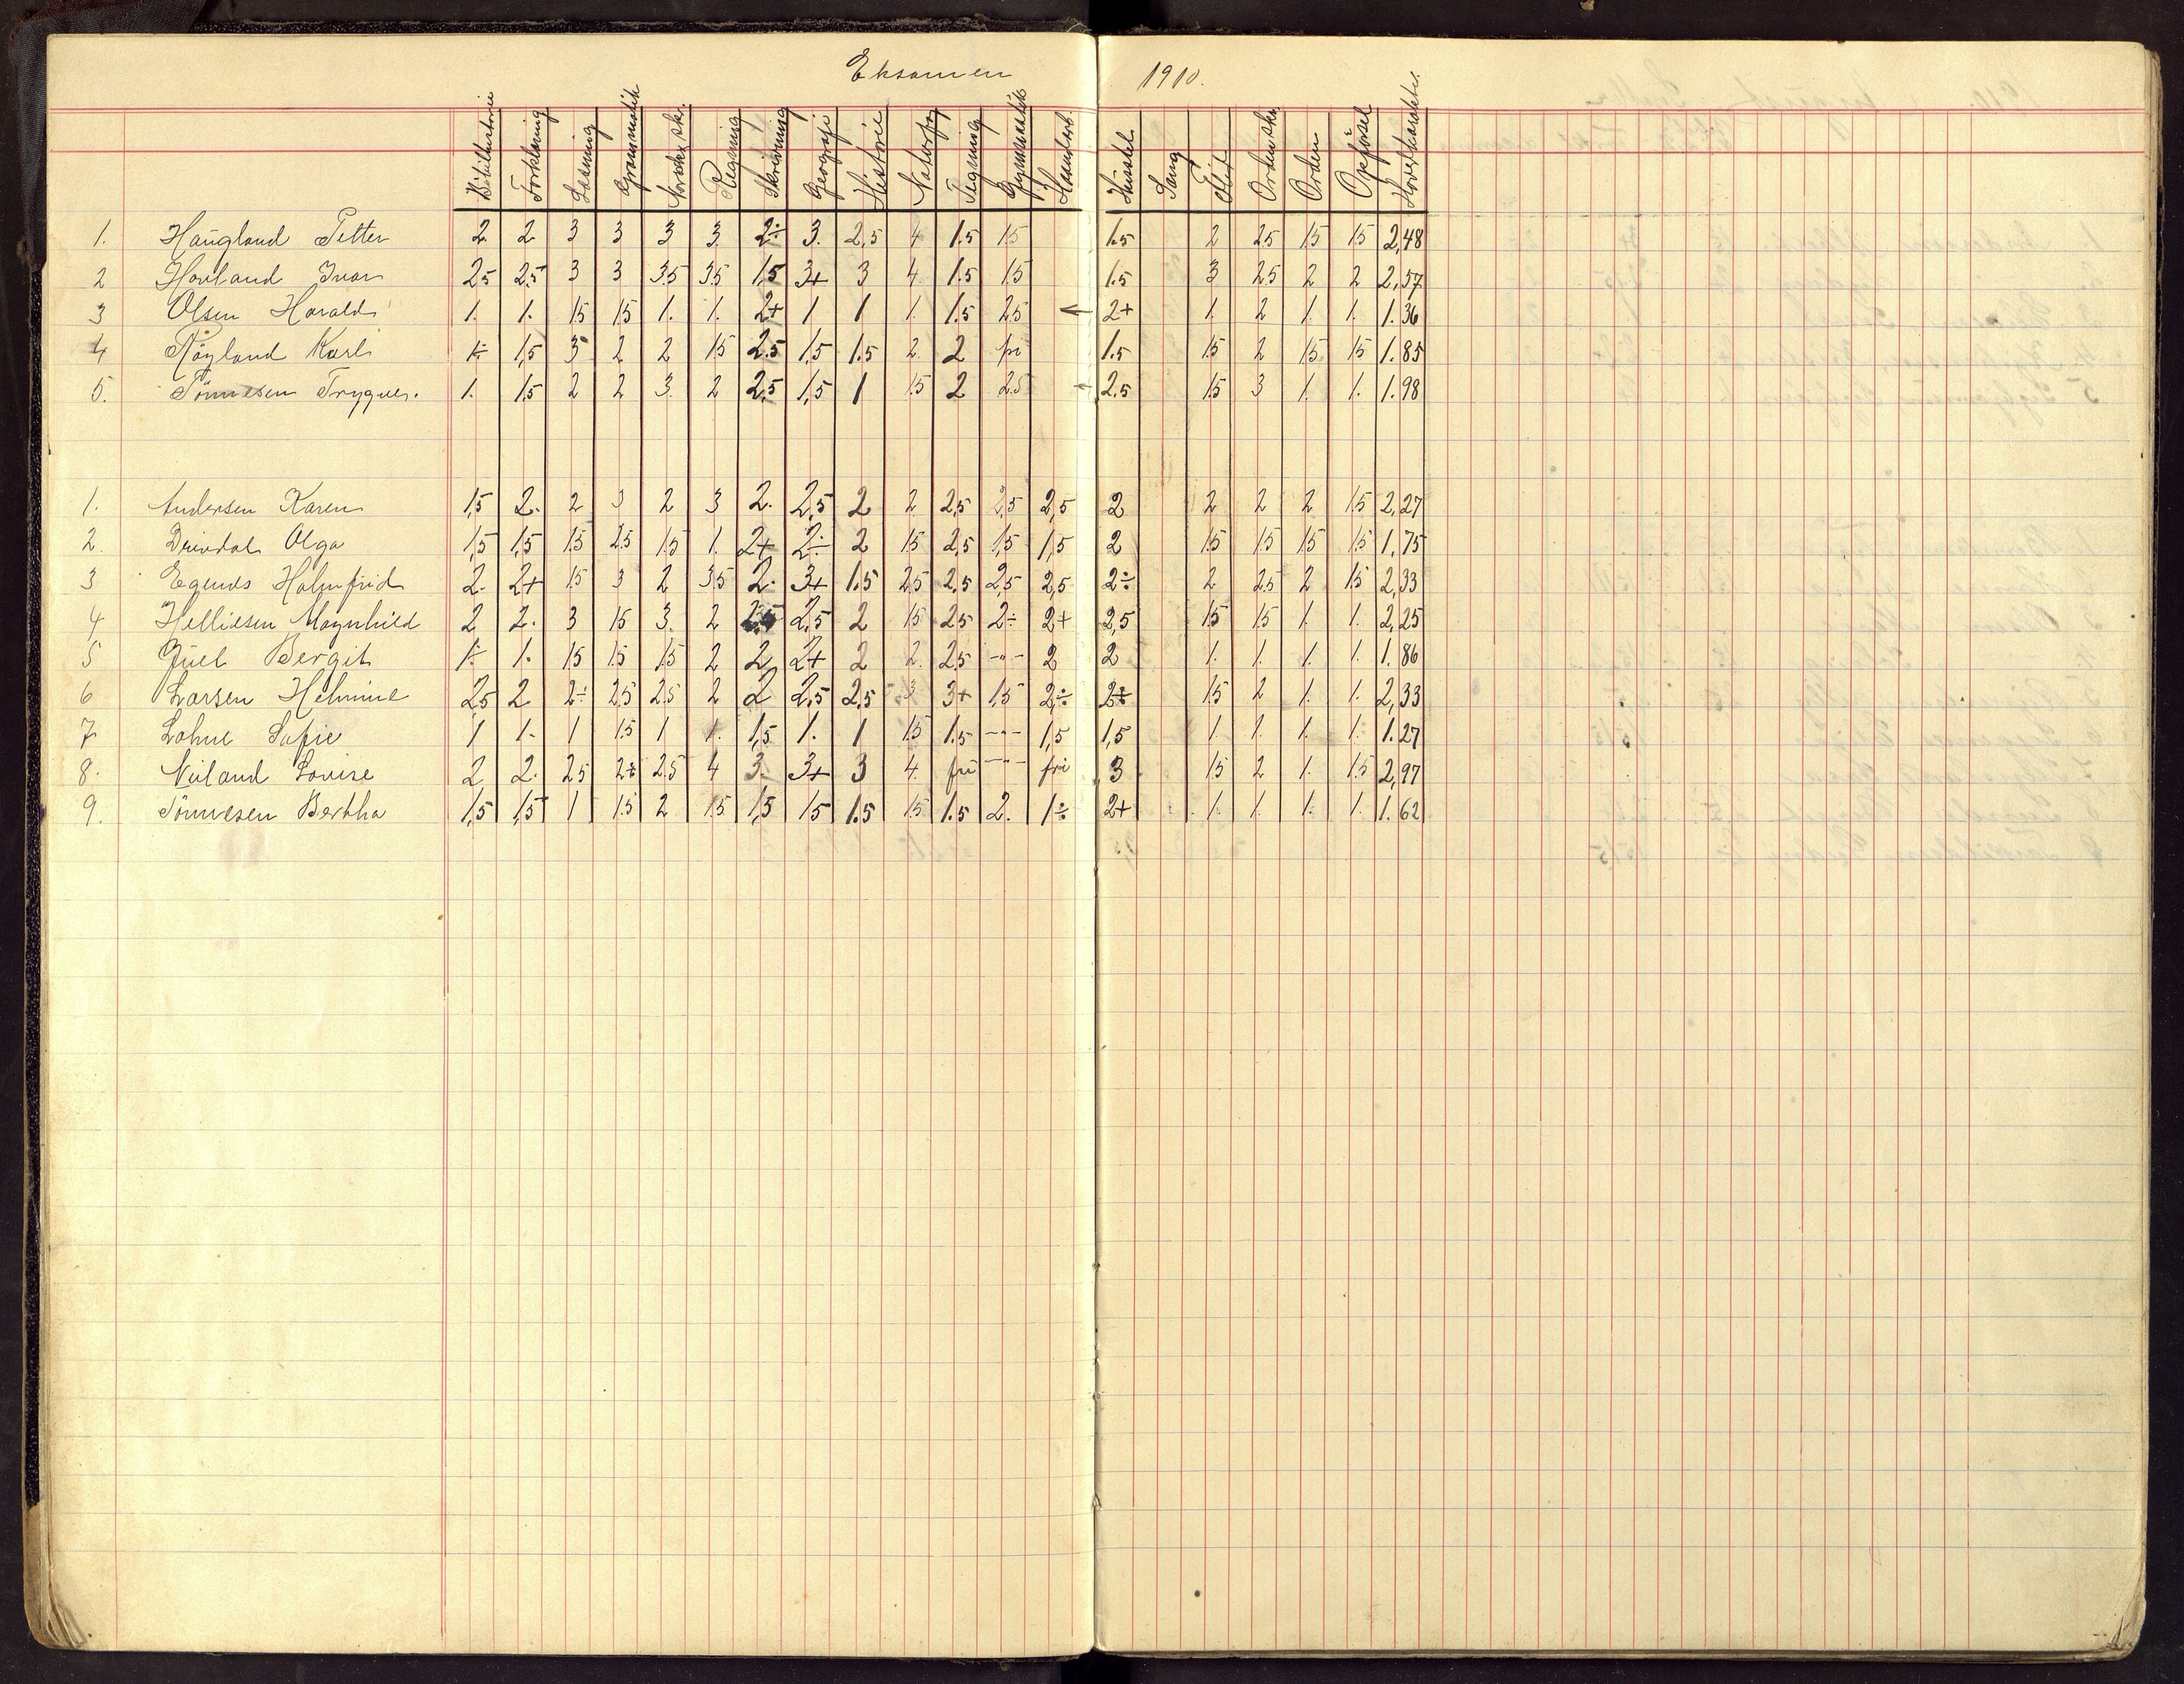 Eksamen 1910.
Bibelhistorie Forklaring Læsning Grammatik Norsk skr. Regning Skrivning Geografi Historie Naturf. Tegning Gymnastik Haandarb. Sang Flid Orden skr. Orden Opførsel Hovedkarakter.
1. Haugland Petter 2. 2 3 3 3 3. 2÷ 3. 2,5 4 1.5 1.5 1.5 2 2.5 1.5 1.5 2,48
2 Hovland Ivar 2.5 2.5 3 3 3.5 3.5 1,5 3+ 3 4 1.5 1.5 1.5 3 2.5 2 2 2,57
3 Olsen Harald 1. 1. 1.5 1.5 1. 1. 2+ 1 1 1. 1.5 2.5 ← 2+ 1. 2 1. 1. 1.36
4 Røyland Karl 1÷ 1,5 3 2 2 1.5 2.5 1,5 1.5 2. 2 fri 1.5 1.5 2 1.5 1.5 1.85
5. Tönnesen Trygve. 1. 1.5 2 2 3. 2 2,5 1,5 1 1.5 2 2.5 ← 2.5 1.5 3 1. 1. 1.98
1. Andersen Karen 1,5 2. 2 3 2 3 2. 2,5 2 2 2,5 2,5 2,5 2 2 2 2 1.5 2,27
2. Drivdal Olga 1,5 1,5 1.5 2.5 1.5 1. 2+ 2÷ 2 1.5 2,5 1,5 1,5 2 1.5 1.5 1.5 1.5 1,75
3 Egenes Holmfrid 2. 2+ 1.5 3 2 3.5 2. 3+ 1.5 2.5 2.5 2,5 2,5 2÷ 2 2.5 2 1.5 2,33
4 Helliesen Magnhild 2 2. 3 1.5 3. 2 2.5 2,5 2 1.5 2.5 2÷ 2+ 2,5 1.5 1.5 1. 1. 2,25
5 Juel Bergit 1÷ 1. 1.5 1.5 1.5 2 2 2+ 2 2. 2.5 -"- 2 2 1. 1. 1. 1. 1.86
6 Larsen Helmine 2.5 2 2÷ 2.5 2.5 2 2 2,5 2,5 3 3+ 1.5 2÷ 2÷ 1.5 2 1. 1. 2,33
7 Lohne Sofie 1 1. 1 1.5 1 1. 1,5 1. 1 1.5 1.5 -"- 1,5 1,5 1. 1. 1. 1. 1.27
8. Nuland Lovise 2 2. 2.5 2÷ 2.5 4 3. 3+ 3 4. fri -"- fri 3 1.5 2 1. 1.5 2,97
9. Tönnesen Bertha 1,5 1,5 1 1.5 2 1.5 1,5 1.5 1.5 1.5 1.5 2. 1÷ 2+ 1. 1. 1. 1. 1.62